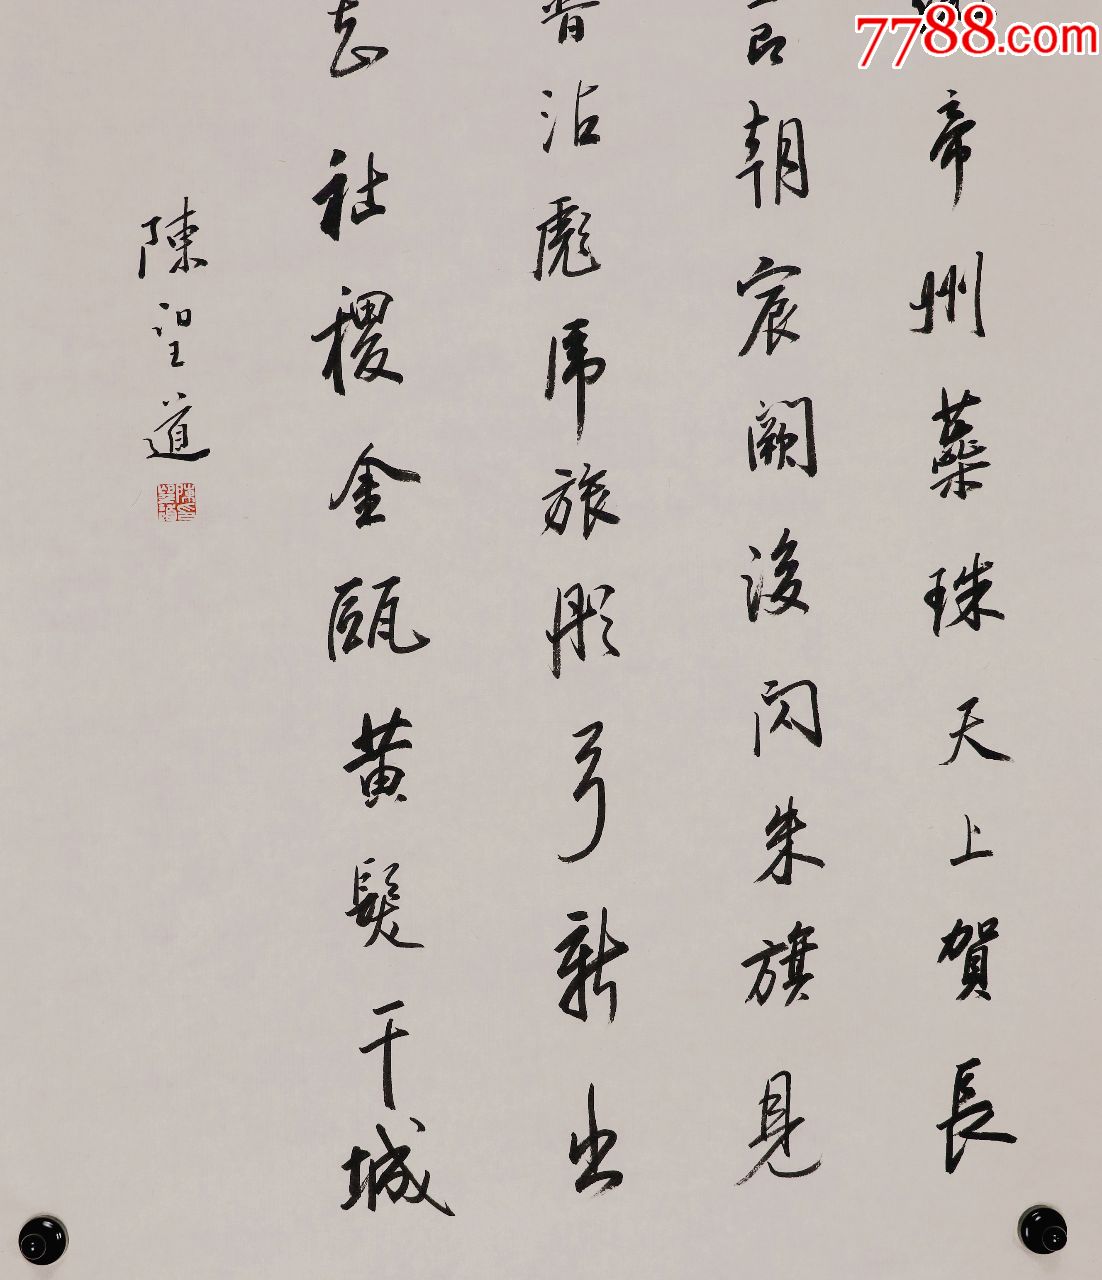 7788.com
帝州蘂珠天上賀長
朝宸闕後閃朱旗見
沾彪虎旅彤弓新出
社稷金甌黃髮干城
陳望道